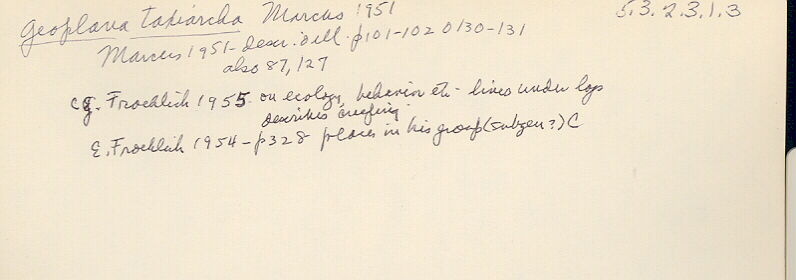 Geoplana taxiarcha Marcus 1951 5.3.2.3.1.3
Marcus 1951- descr. & ill. p101-102 0130-131
also 87, 127
Froehlich 1955 on ecology, behavior etc - lives under logs
describes creeping
E. Froehlich 1954 - p328 places in his group (subgen?) C